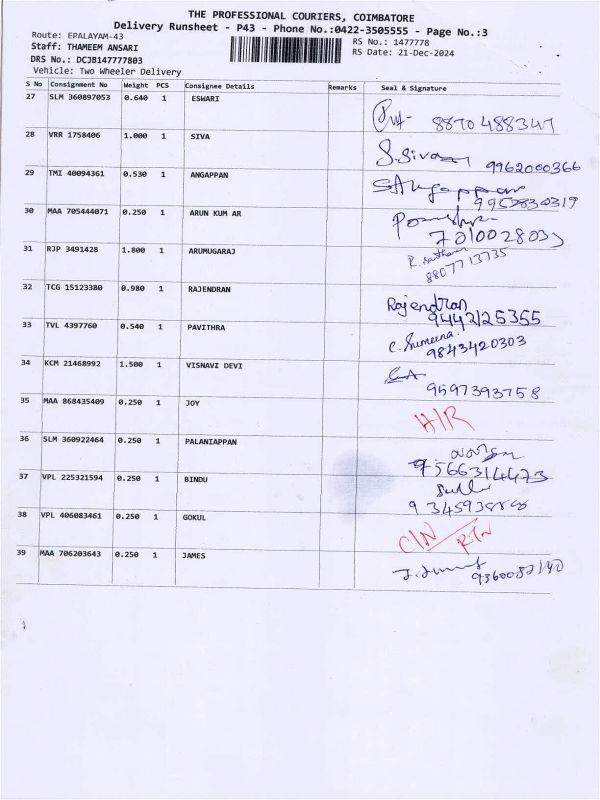 THE PROFESSIONAL COURIERS, COIMBATORE
Delivery Runsheet - P43 - Phone No.:0422-3505555 - Page No.:3
Route: EPALAYAM-43
Staff: THAMEEM ANSARI
DRS No.: DCJB147777803
Vehicle: Two Wheeler Delivery
RS No.: 1477778
RS Date: 21-Dec-2024
S No Consignment No Weight PCS Consignee Details Remarks Seal & Signature
27 SLM 360897053 0.640 1 ESWARI
8870488347
28 VRR 1758406 1.000 1 SIVA
S.Siva 9962000366
29 TMI 40094361 0.530 1 ANGAPPAN
SAngappan
9952830319
30 MAA 705444071 0.250 1 ARUN KUM AR
7010028033
31 RJP 3491428 1.800 1 ARUMUGARAJ
8807713735
32 TCG 15123380 0.980 1 RAJENDRAN
Rajendran
9442125355
33 TVL 4397760 0.540 1 PAVITHRA
C. Sumeena.
9843420303
34 KCM 21468992 1.500 1 VISNAVI DEVI
9597393758
35 MAA 868435409 0.250 1 JOY
H/R
36 SLM 360922464 0.250 1 PALANIAPPAN
9566314473
37 VPL 225321594 0.250 1 BINDU
38 VPL 406083461 0.250 1 GOKUL
C/N RTN
39 MAA 706203643 0.250 1 JAMES
9360082140